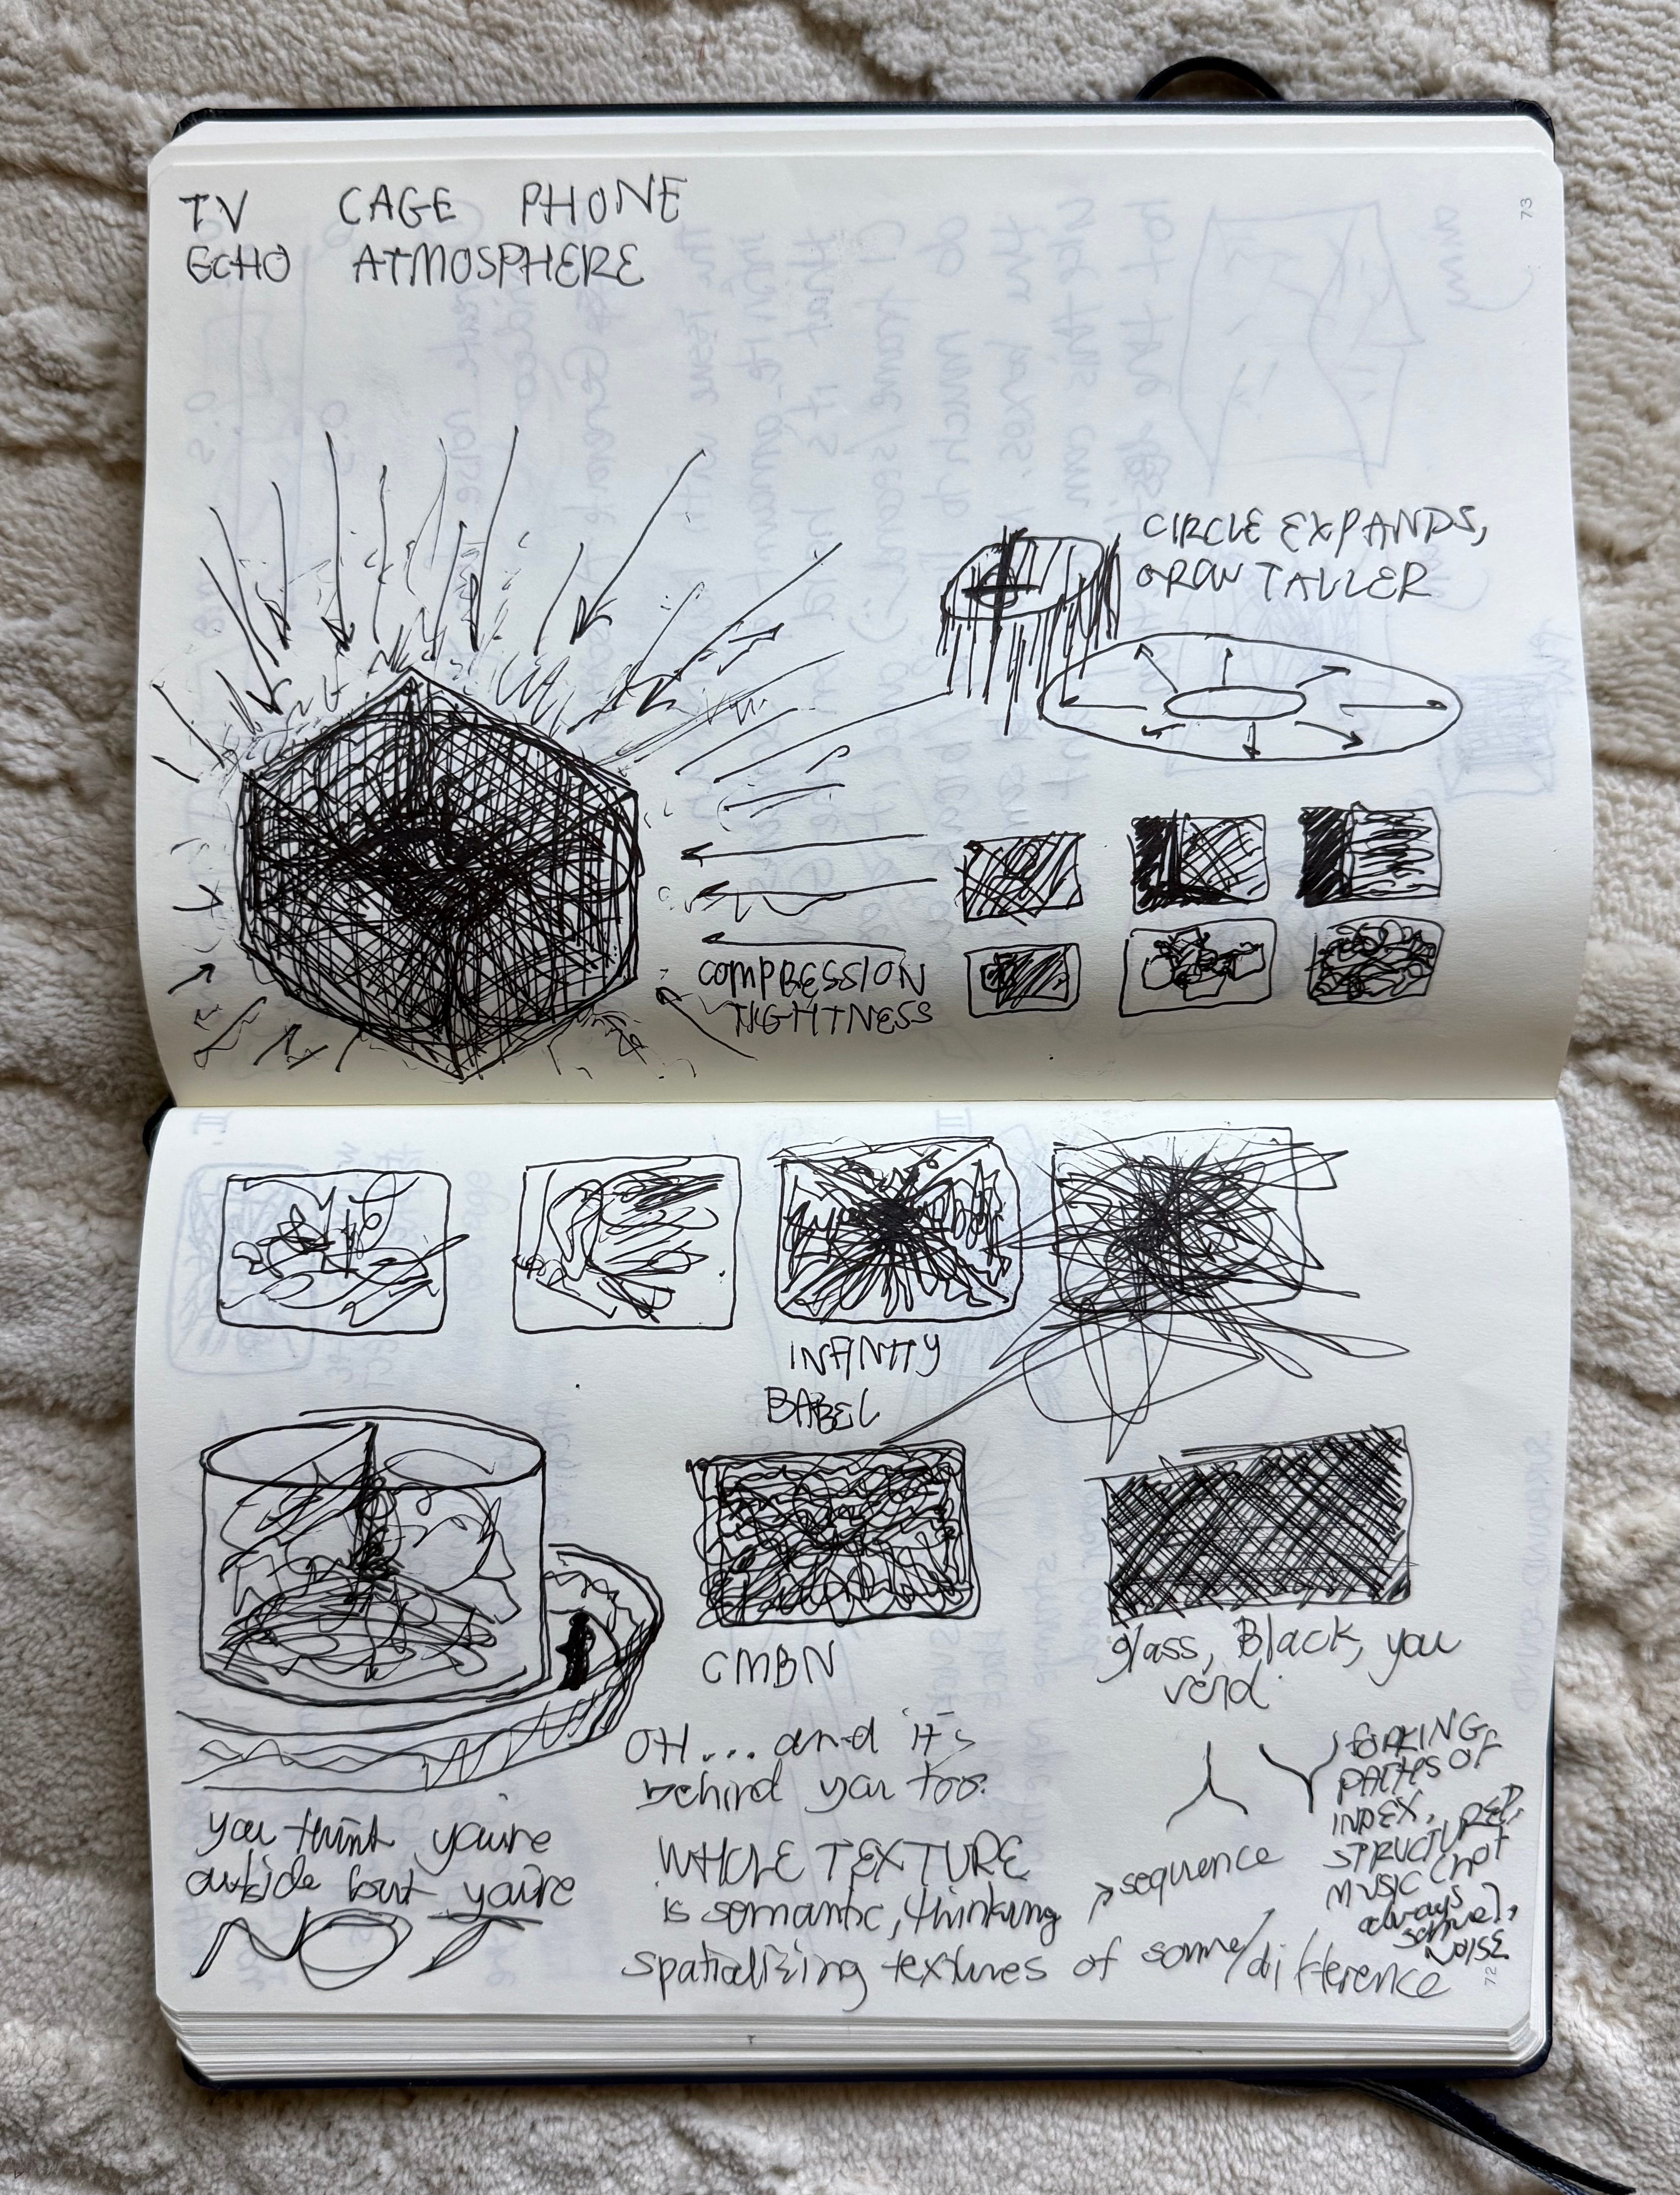 TV CAGE PHONE
ECHO ATMOSPHERE
73
CIRCLE EXPANDS,
GROW TALLER
COMPRESSION
TIGHTNESS
INFINITY
BABEL
CMBN
glass, Black, you
OH... and it's
behind you too.
you think you're
outside but you're
NOT
WHOLE TEXTURE
is semantic, thinking
spatializing textures of same/difference
→sequence
FORKING
OF
INDEX,
STRUCTURED,
MUSIC (not
always
same),
NOISE
72